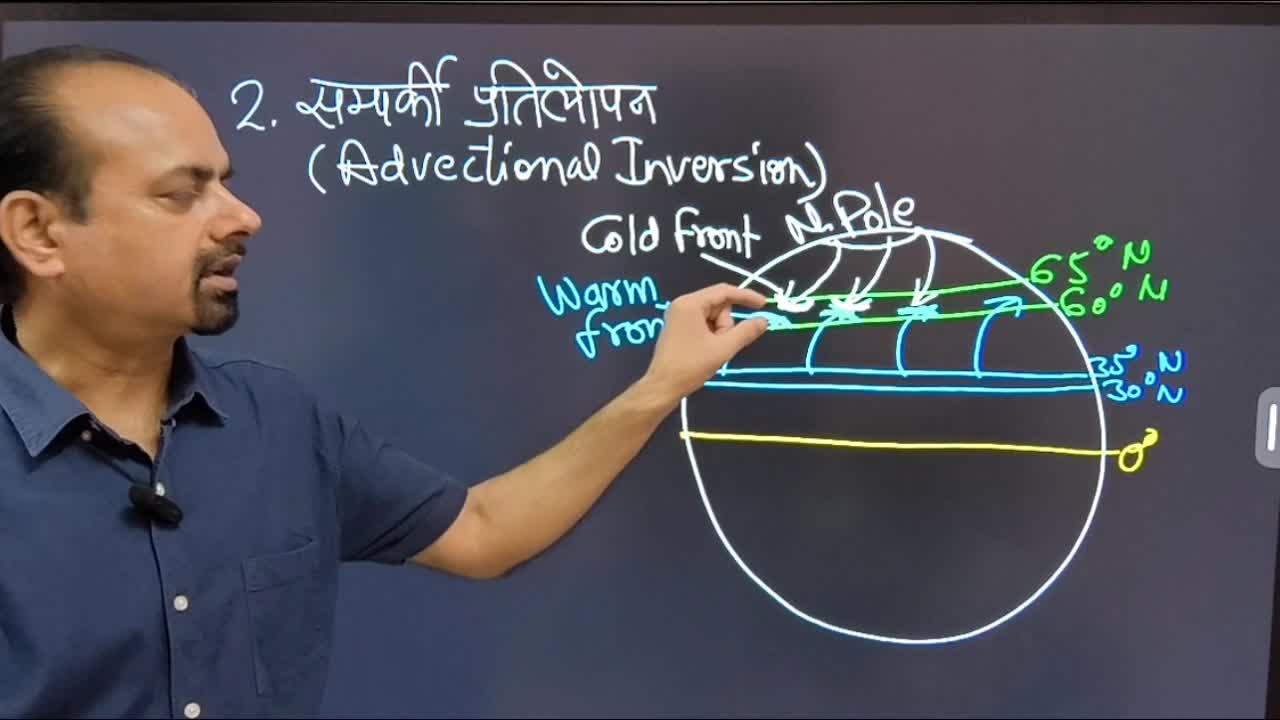 2. सम्पर्की प्रतिलोपन
(Advectional Inversion)
Cold front N. Pole
Warm front
65° N
60° N
35° N
30° N
0°